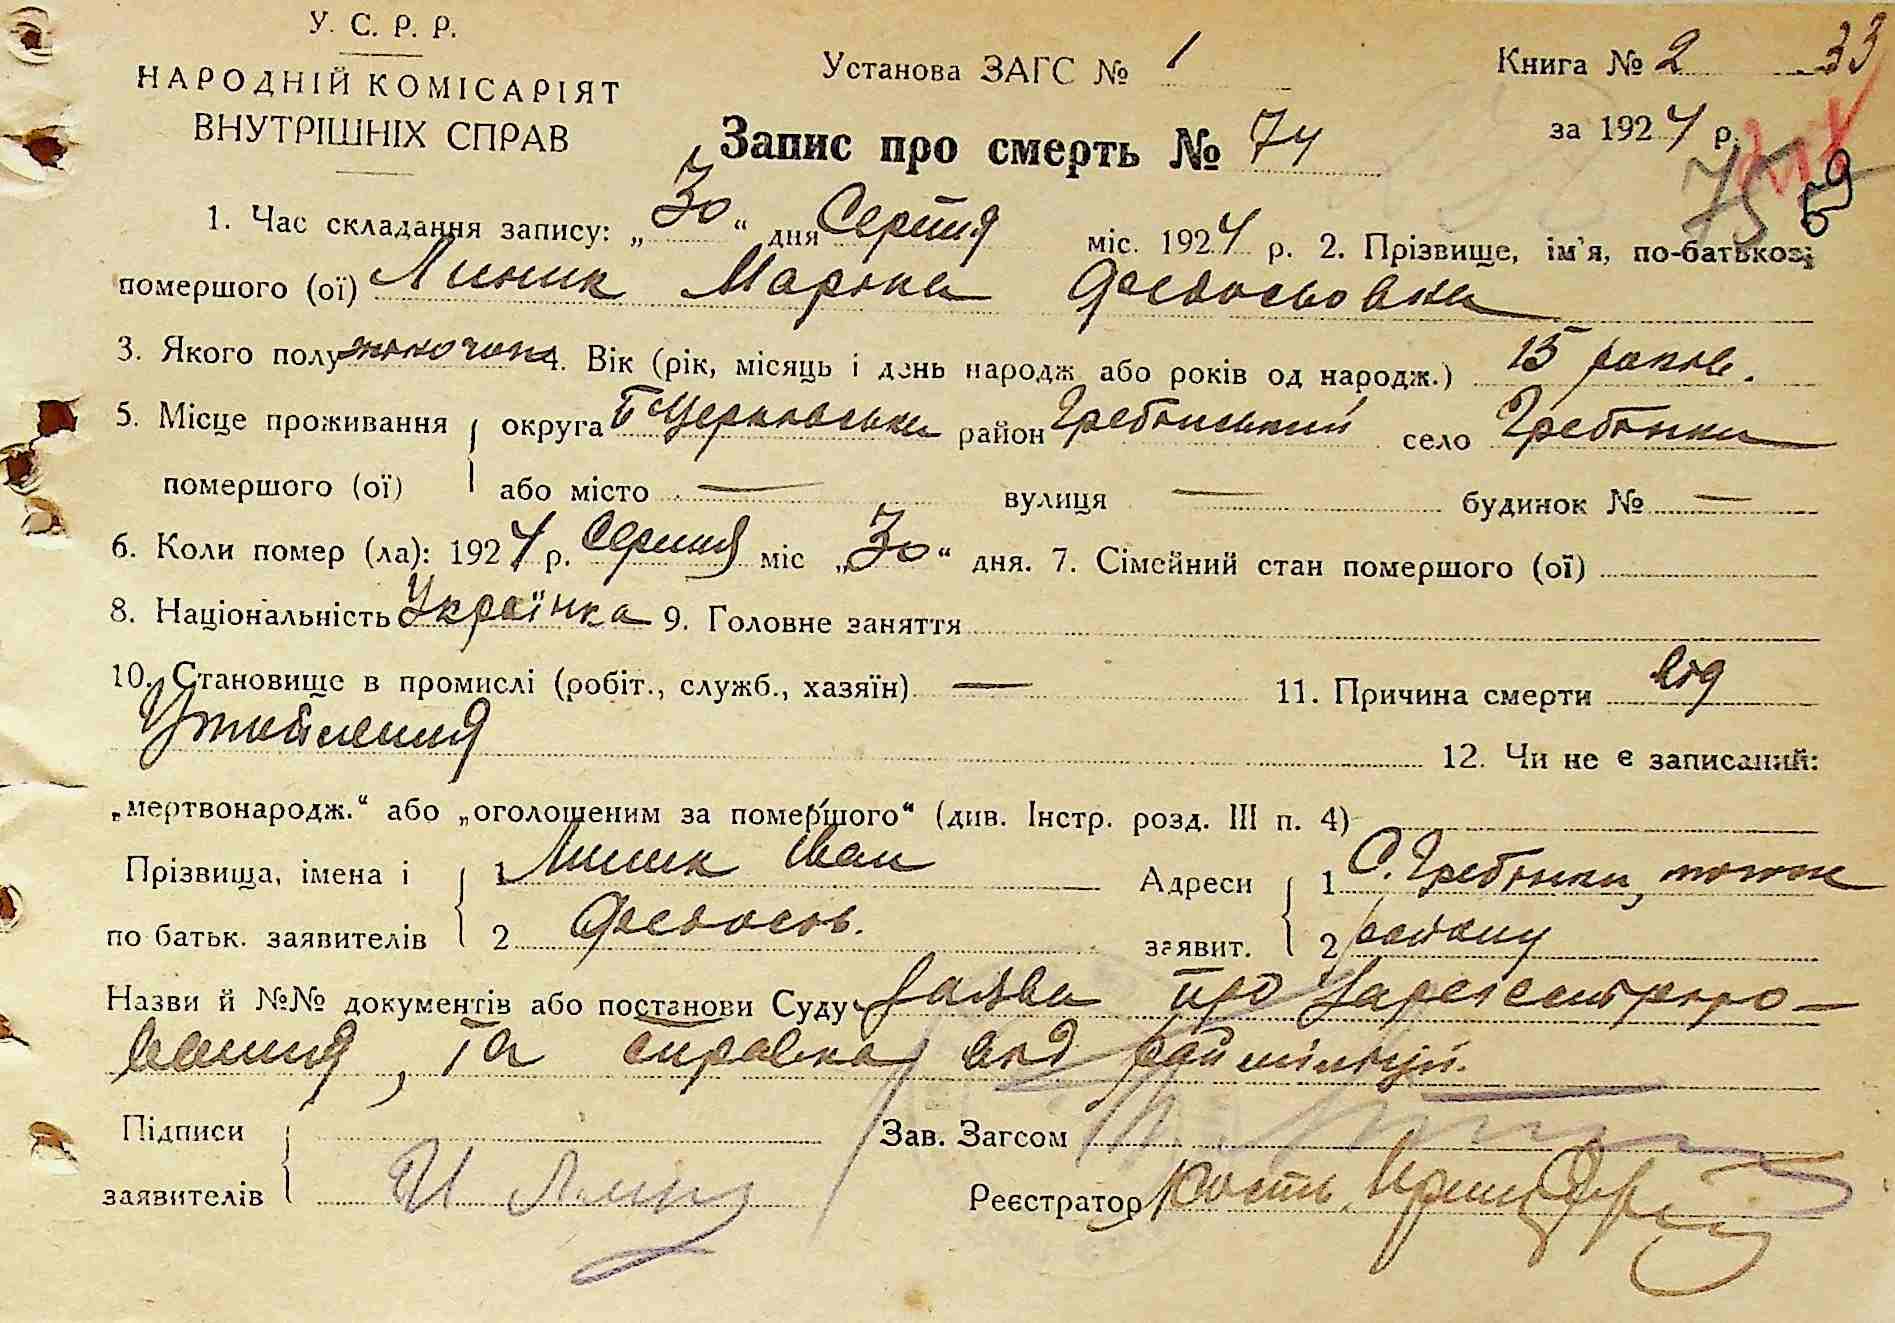 У. С. Р. Р.
НАРОДНІЙ КОМІСАРІЯТ
ВНУТРІШНІХ СПРАВ
Установа ЗАГС № 1
Книга № 2 33
за 1924 р.
Запис про смерть № 74
75 59
1. Час складання запису: „30“ дня Серпня міс. 1924 р. 2. Прізвище, ім'я, по-батькові
помершого (ої) Линик Марина Федосьовна
3. Якого полу жіночого 4. Вік (рік, місяць і день народж або років од народж.) 15 років.
5. Місце проживання округа Б Церковська район Гребінський село Гребінки
помершого (ої) або місто — вулиця — будинок № —
6. Коли помер (ла): 1924 р. Серпня міс „30“ дня. 7. Сімейний стан помершого (ої)
8. Національність Українка 9. Головне заняття
10. Становище в промислі (робіт., служб., хазяїн) — 11. Причина смерти від
Утоплення
12. Чи не є записаний:
„мертвонародж.“ або „оголошеним за помершого“ (див. Інстр. розд. III п. 4)
Прізвища, імена і 1 Линик Іван Адреси 1 С. Гребінки, того ж
по батьк. заявителів 2 Федосів. заявит. 2 району
Назви й №№ документів або постанови Суду Заява про зарегестріро-
вания, та справка від райміліції.
Підписи
заявителів И Линик
Зав. Загсом
Реєстратор